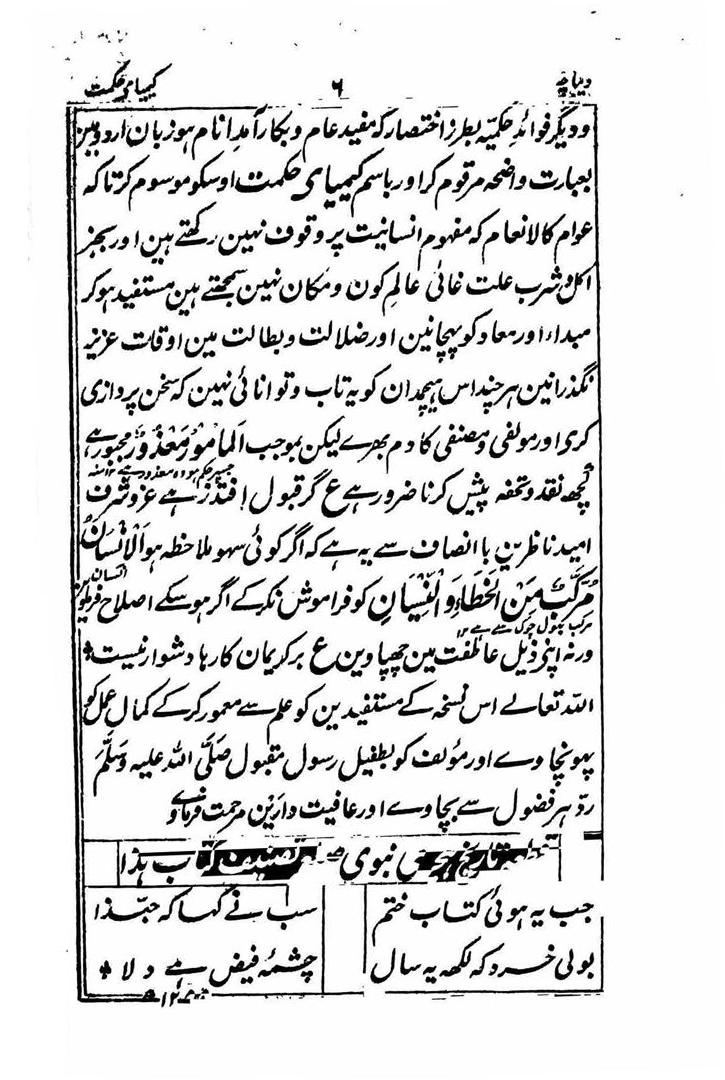 دیباچہ ۶ کیمیای حکمت
و دیگر فوائد حکمیہ بطرز اختصار کہ مفید عام و بکار آمد انام ہو زبان اردو مین
بعبارت واضحہ مرقوم کر اور باسم کیمیای حکمت اوسکو موسوم کر تا کہ
عوام کالانعام کہ مفہوم انسانیت پر وقوف نہین رکھتے ہین اور بجز
اکل و شرب علت غائی عالم کون و مکان نہین سمجھتے ہین مستفید ہو کر
مبداء اور معاد کو پہچانین اور ضلالت و بطالت مین اوقات عزیز
نگذرانین ہر چند اس ہیچمدان کو یہ تاب و توانائی نہین کہ سخن پردازی
کری اور مولفی و مصنفی کا دم بھرے لیکن بموجب المامور معذور مجبور ہے
کچھ نقد و تحفہ پیش کرنا ضرور ہے ع گر قبول افتد زہے عز و شرف
امید ناظرین با انصاف سے یہ ہے کہ اگر کوئی سہو ملاحظہ ہو الانسان
مرکب من الخطاء والنسیان کو فراموش نکرکے اگر ہو سکے اصلاح فرماوین
مرکب بھول چوک سے ہے ۱۲
ورنہ اپنی ذیل عاطفت مین چھپاوین ع بر کریمان کارہا دشوار نیست
اللہ تعالے اس نسخہ کے مستفیدین کو علم سے معمور کرکے کمال عمل کو
پہونچاوے اور مؤلف کو بطفیل رسول مقبول صلَّی اللہ علیہ وسلَّم
ردّ ہر فضول سے بچاوے اور عافیت دارین مرحمت فرماوے
قطعہ تاریخ ہجری نبوی تصنیف کتاب ہذا
جب یہ ہوئی کتاب ختم سب نے کہا کہ حبّذا
بولی خرد کہ لکھہ یہ سال چشمۂ فیض ہے دلا